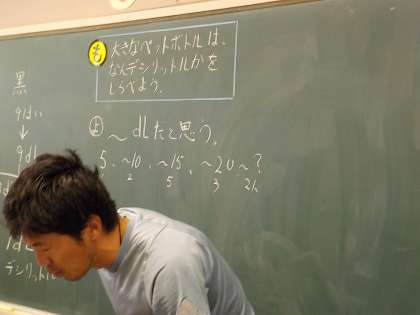 も
大きなペットボトルは、
なんデシリットルかを
しらべよう。
黒
9はい
↓
9dL
よ
〜dLだと思う。
5、〜10、〜15、〜20〜?
2 5 3 21
1dL
デシリットル